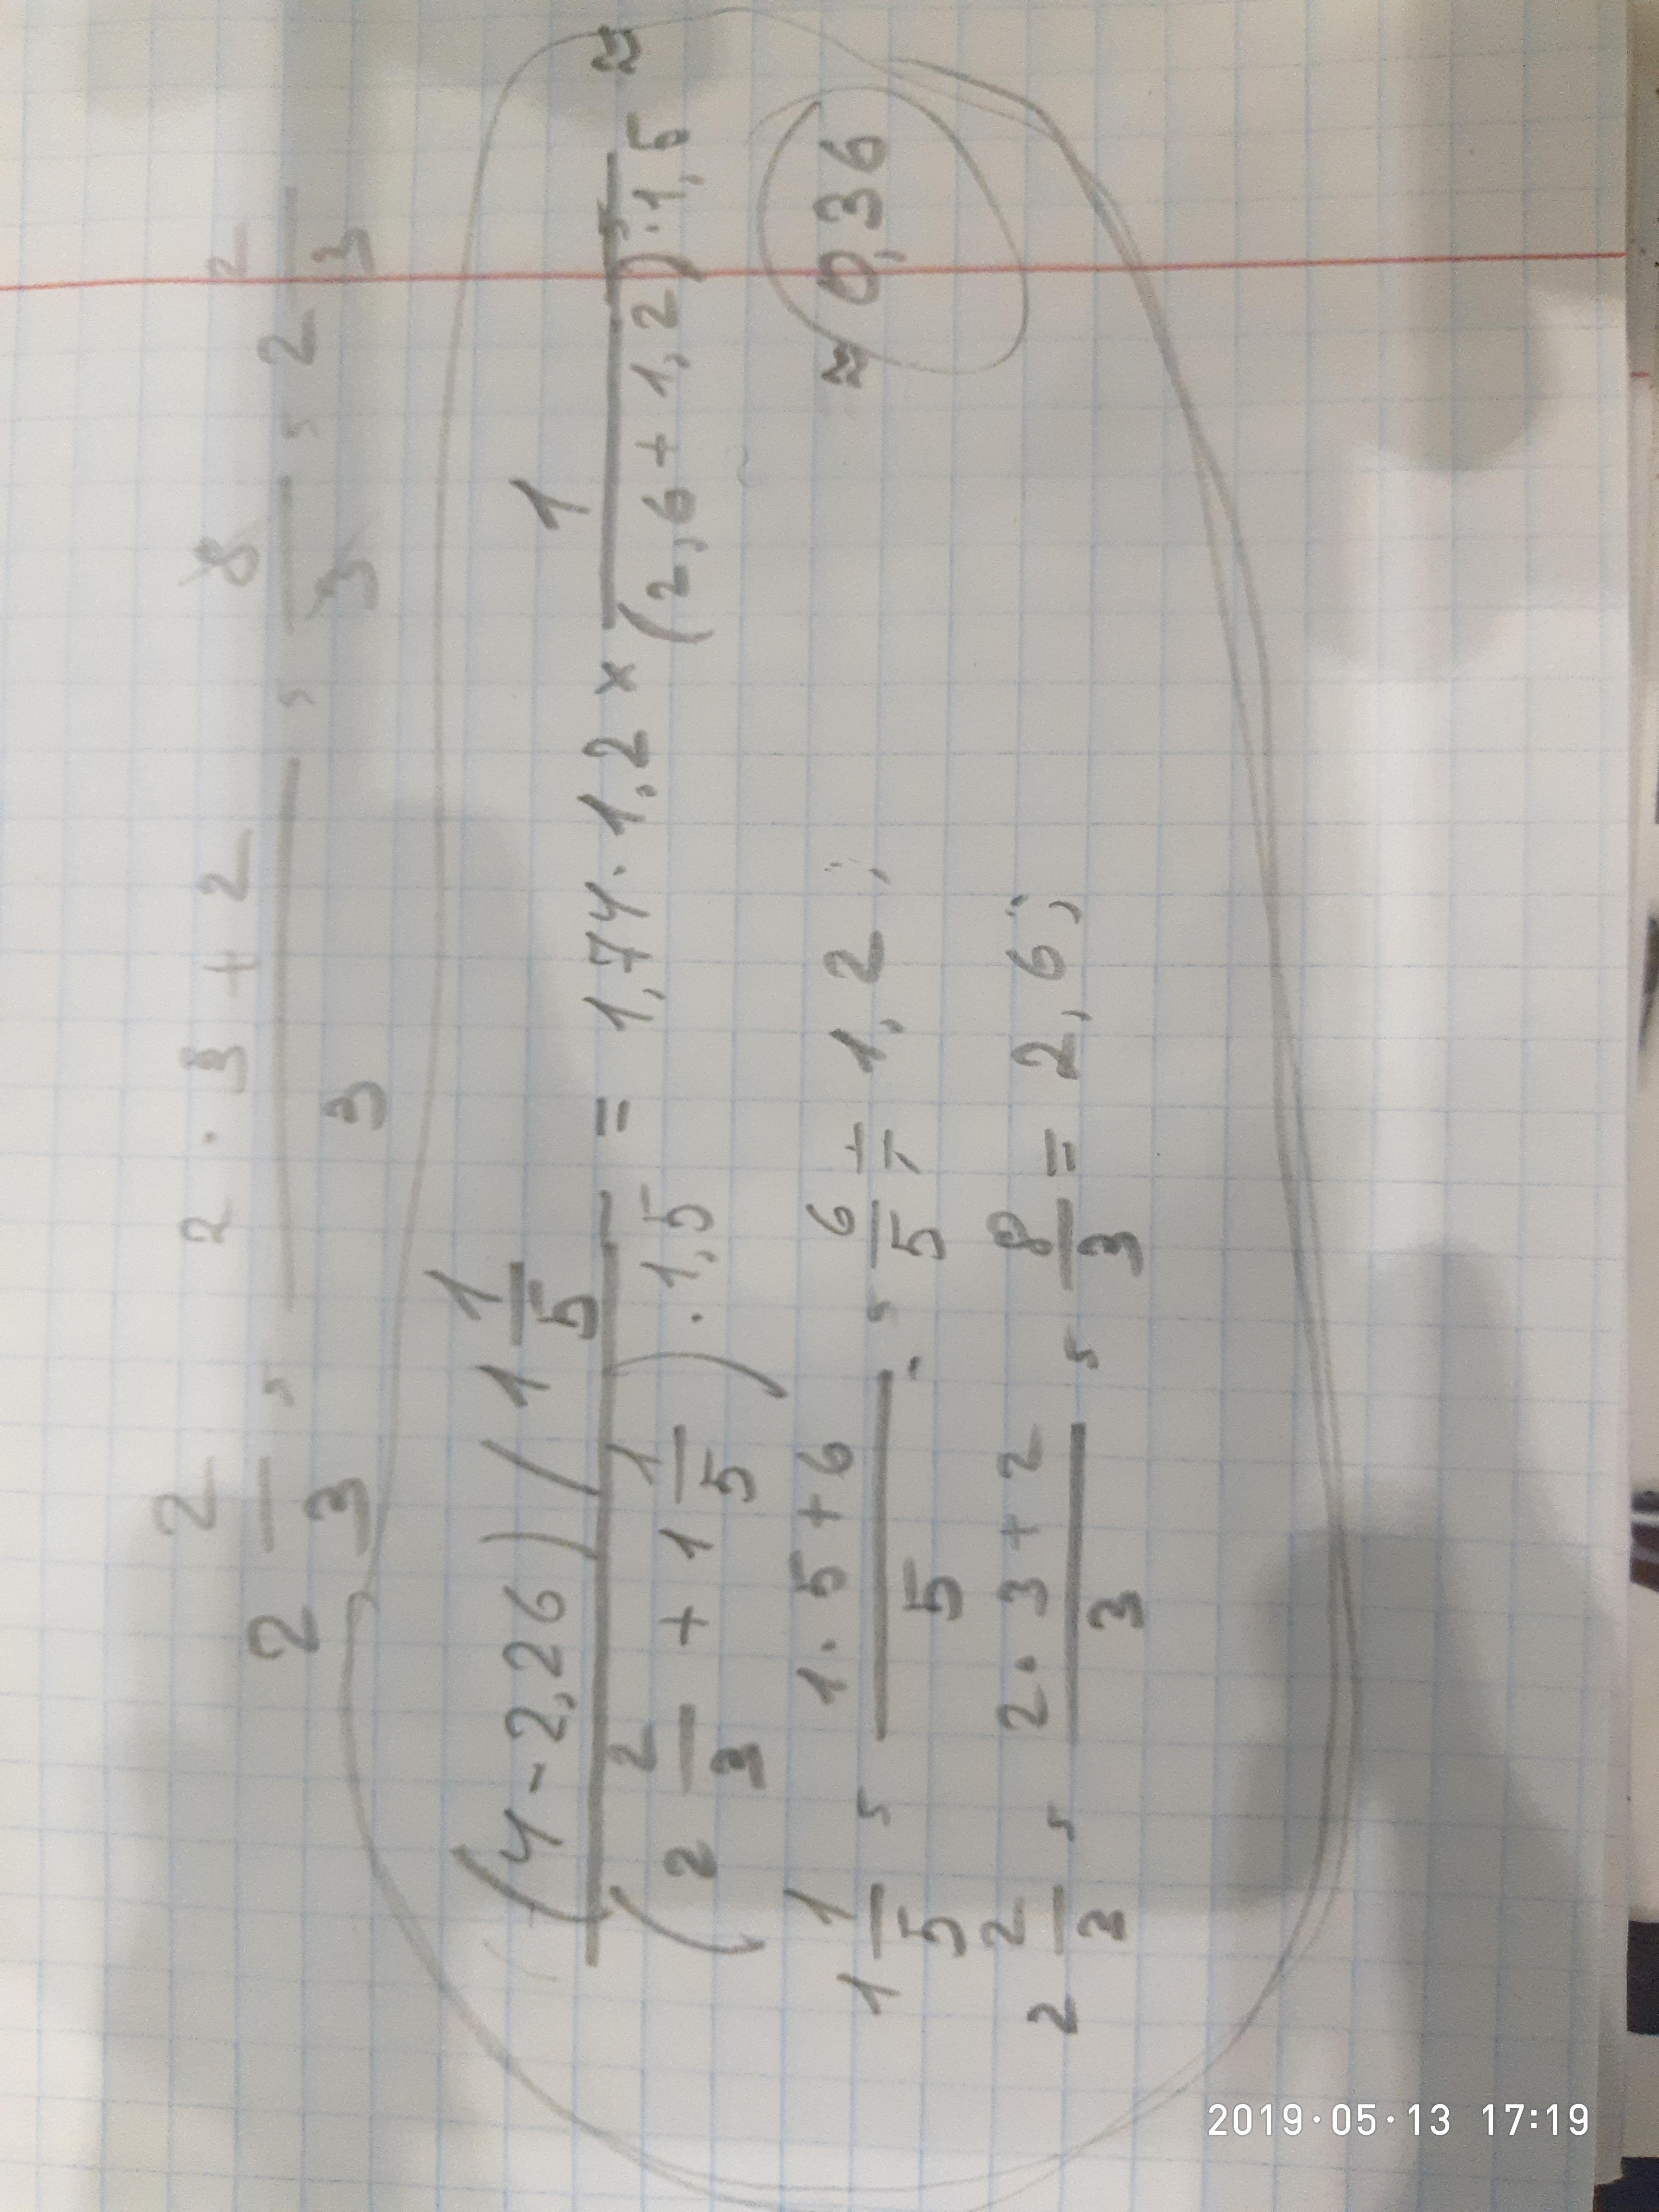 2 2/3 = (2 · 3 + 2)/3 = 8/3 = 2 2/3
((4 - 2,26) / 1 1/5)/((2 2/3 + 1 1/5) · 1,5) = 1,74 · 1,2 × 1/((2,6 + 1,2) · 1,5) ≈
≈ 0,36
1 1/5 = (1 · 5 + 6)/5 = 6/5 = 1,2;
2 2/3 = (2 · 3 + 2)/3 = 8/3 = 2,6;
2019·05·13 17:19